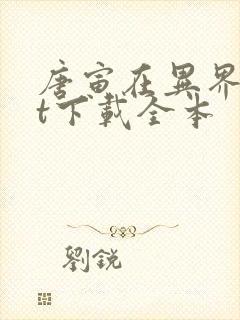 唐寅在異界
t下載全本
劉銳